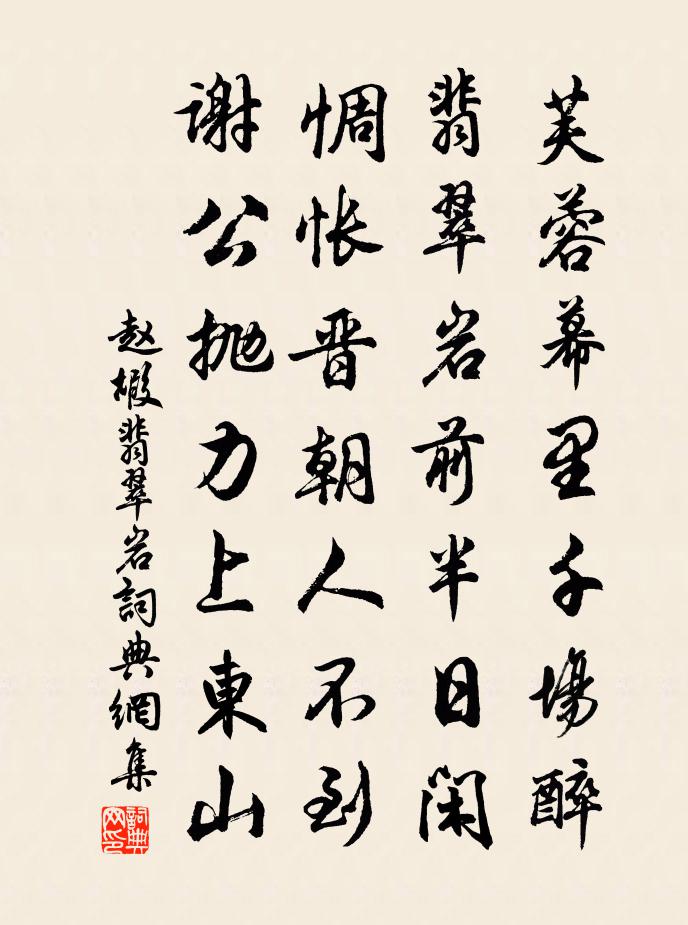 芙蓉幕里千場醉
翡翠岩前半日閑
惆悵晋朝人不到
謝公抛力上東山
赵嘏翡翠岩詞典網集
詞典网印